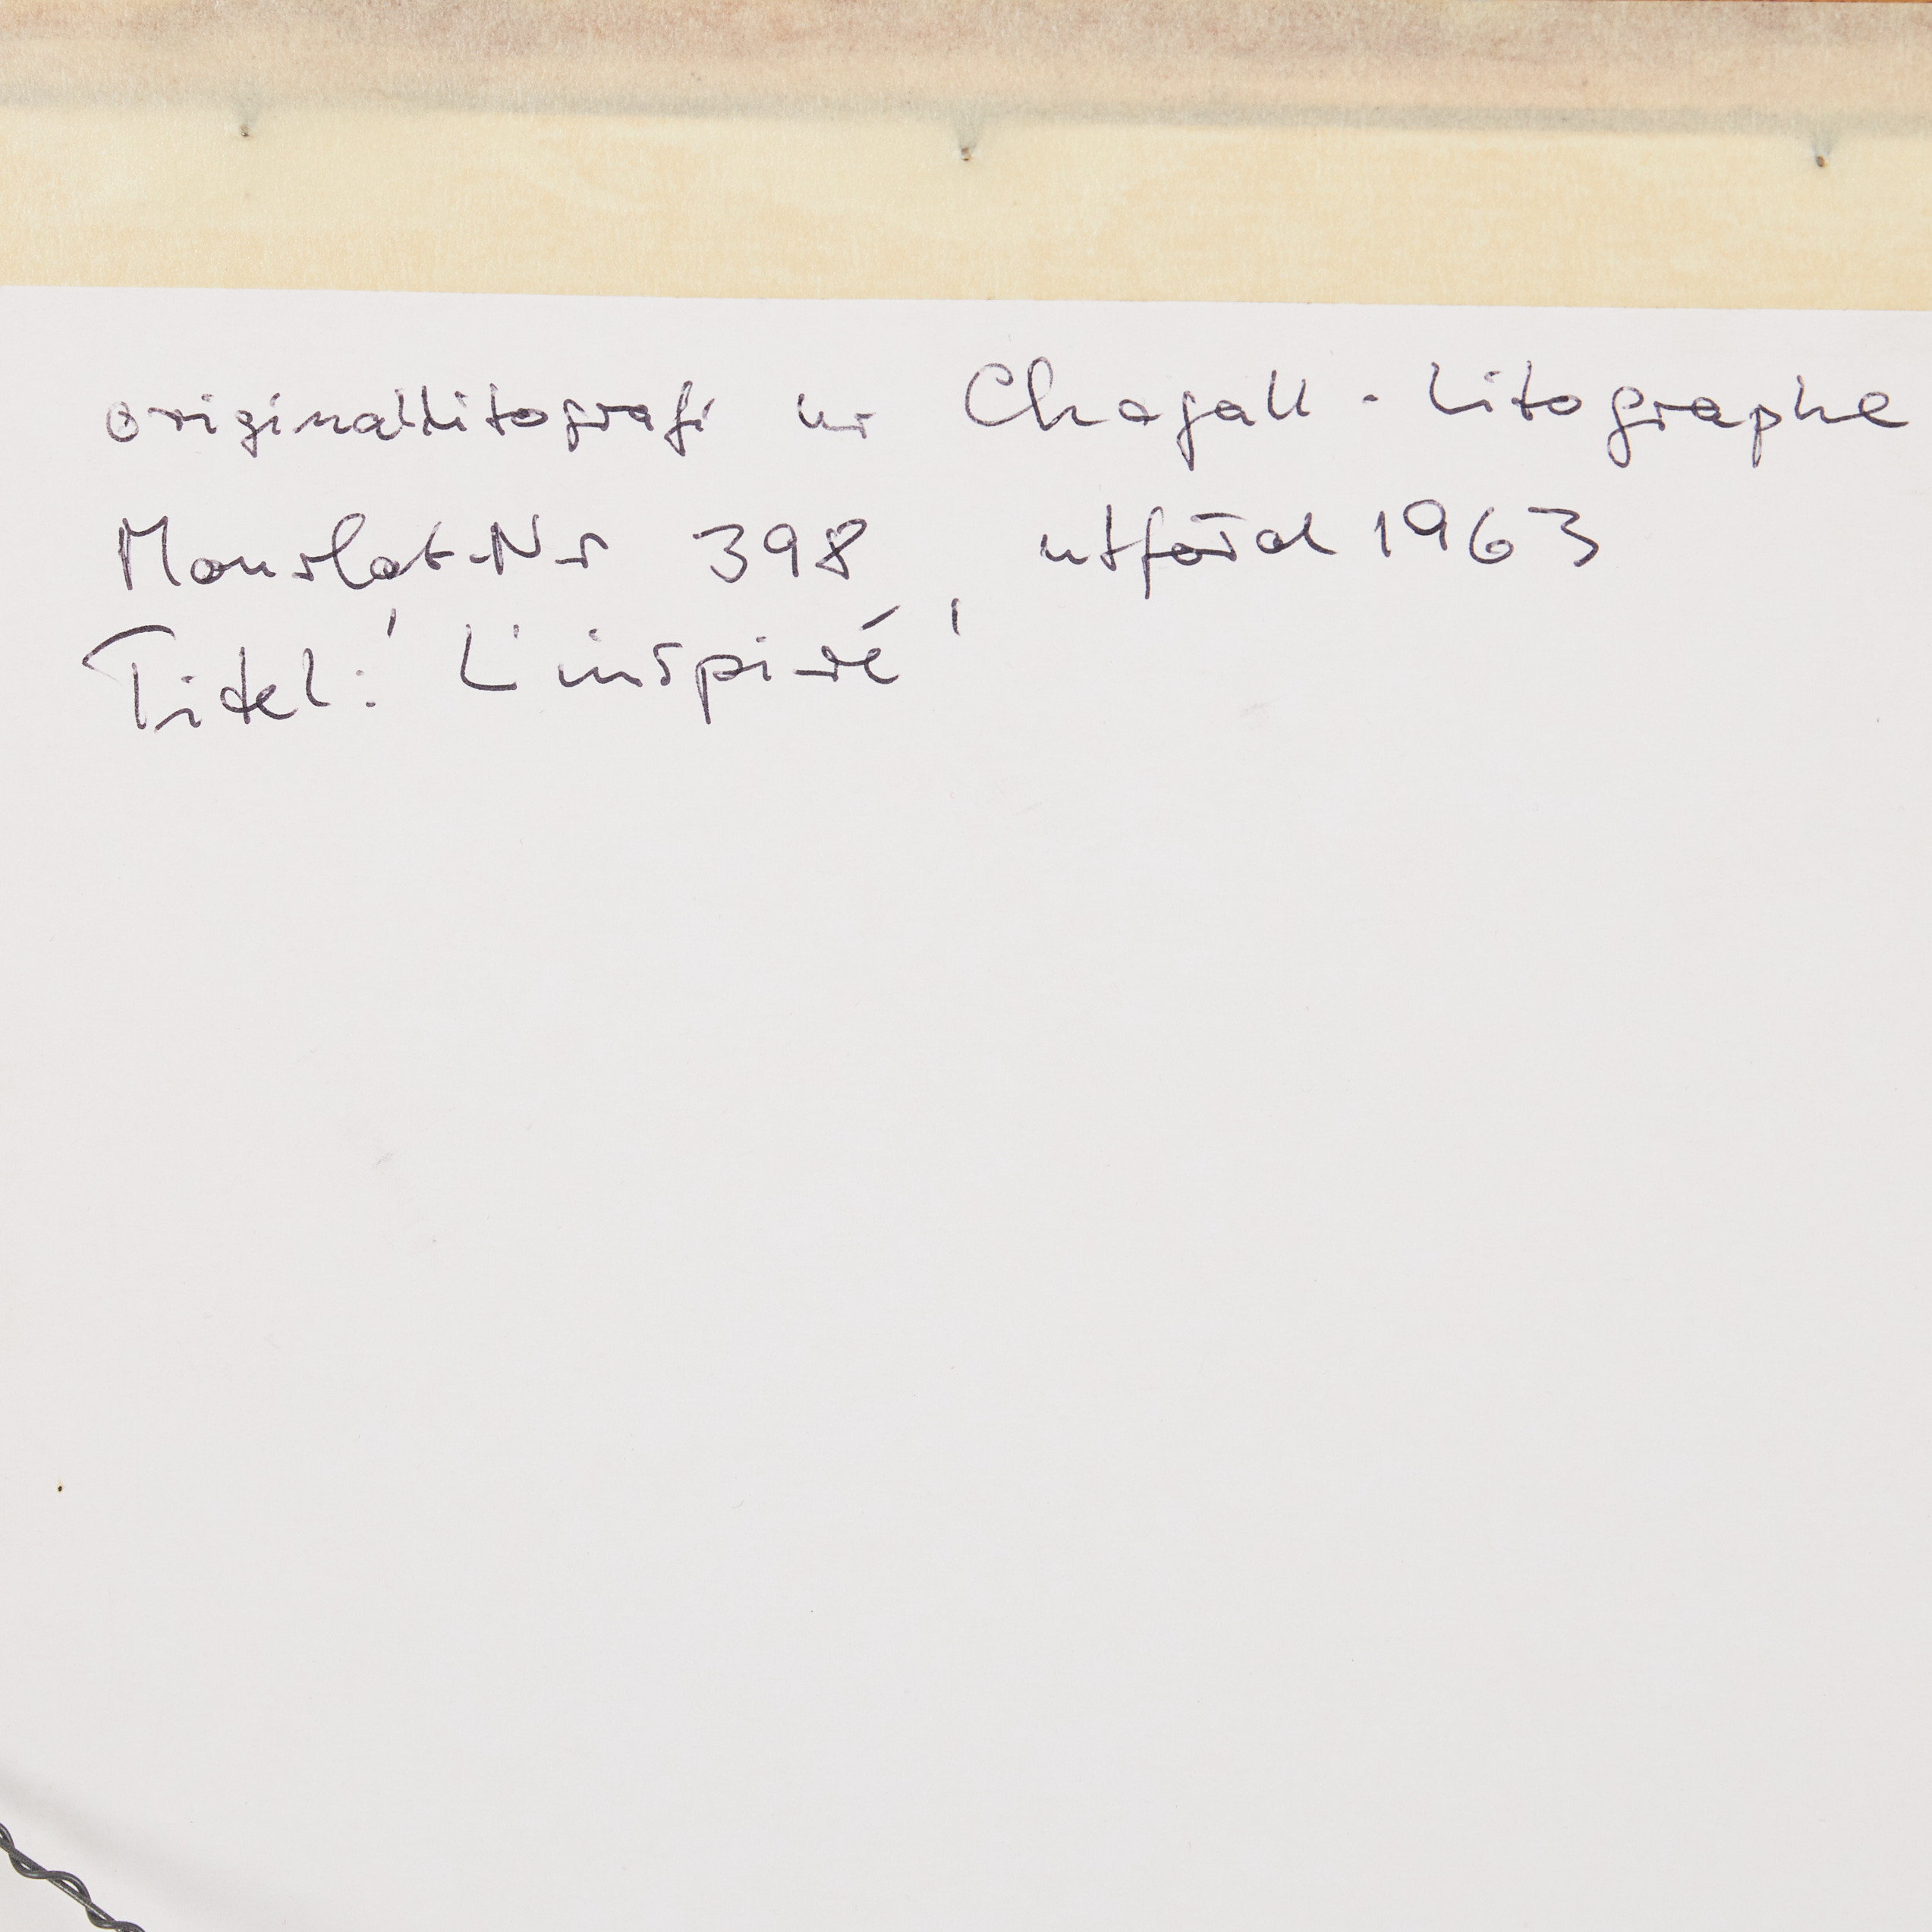 originallitografi ur Chagall - Litographe
Mourlot-Nr 398 utförd 1963
Titel: 'L'inspiré'